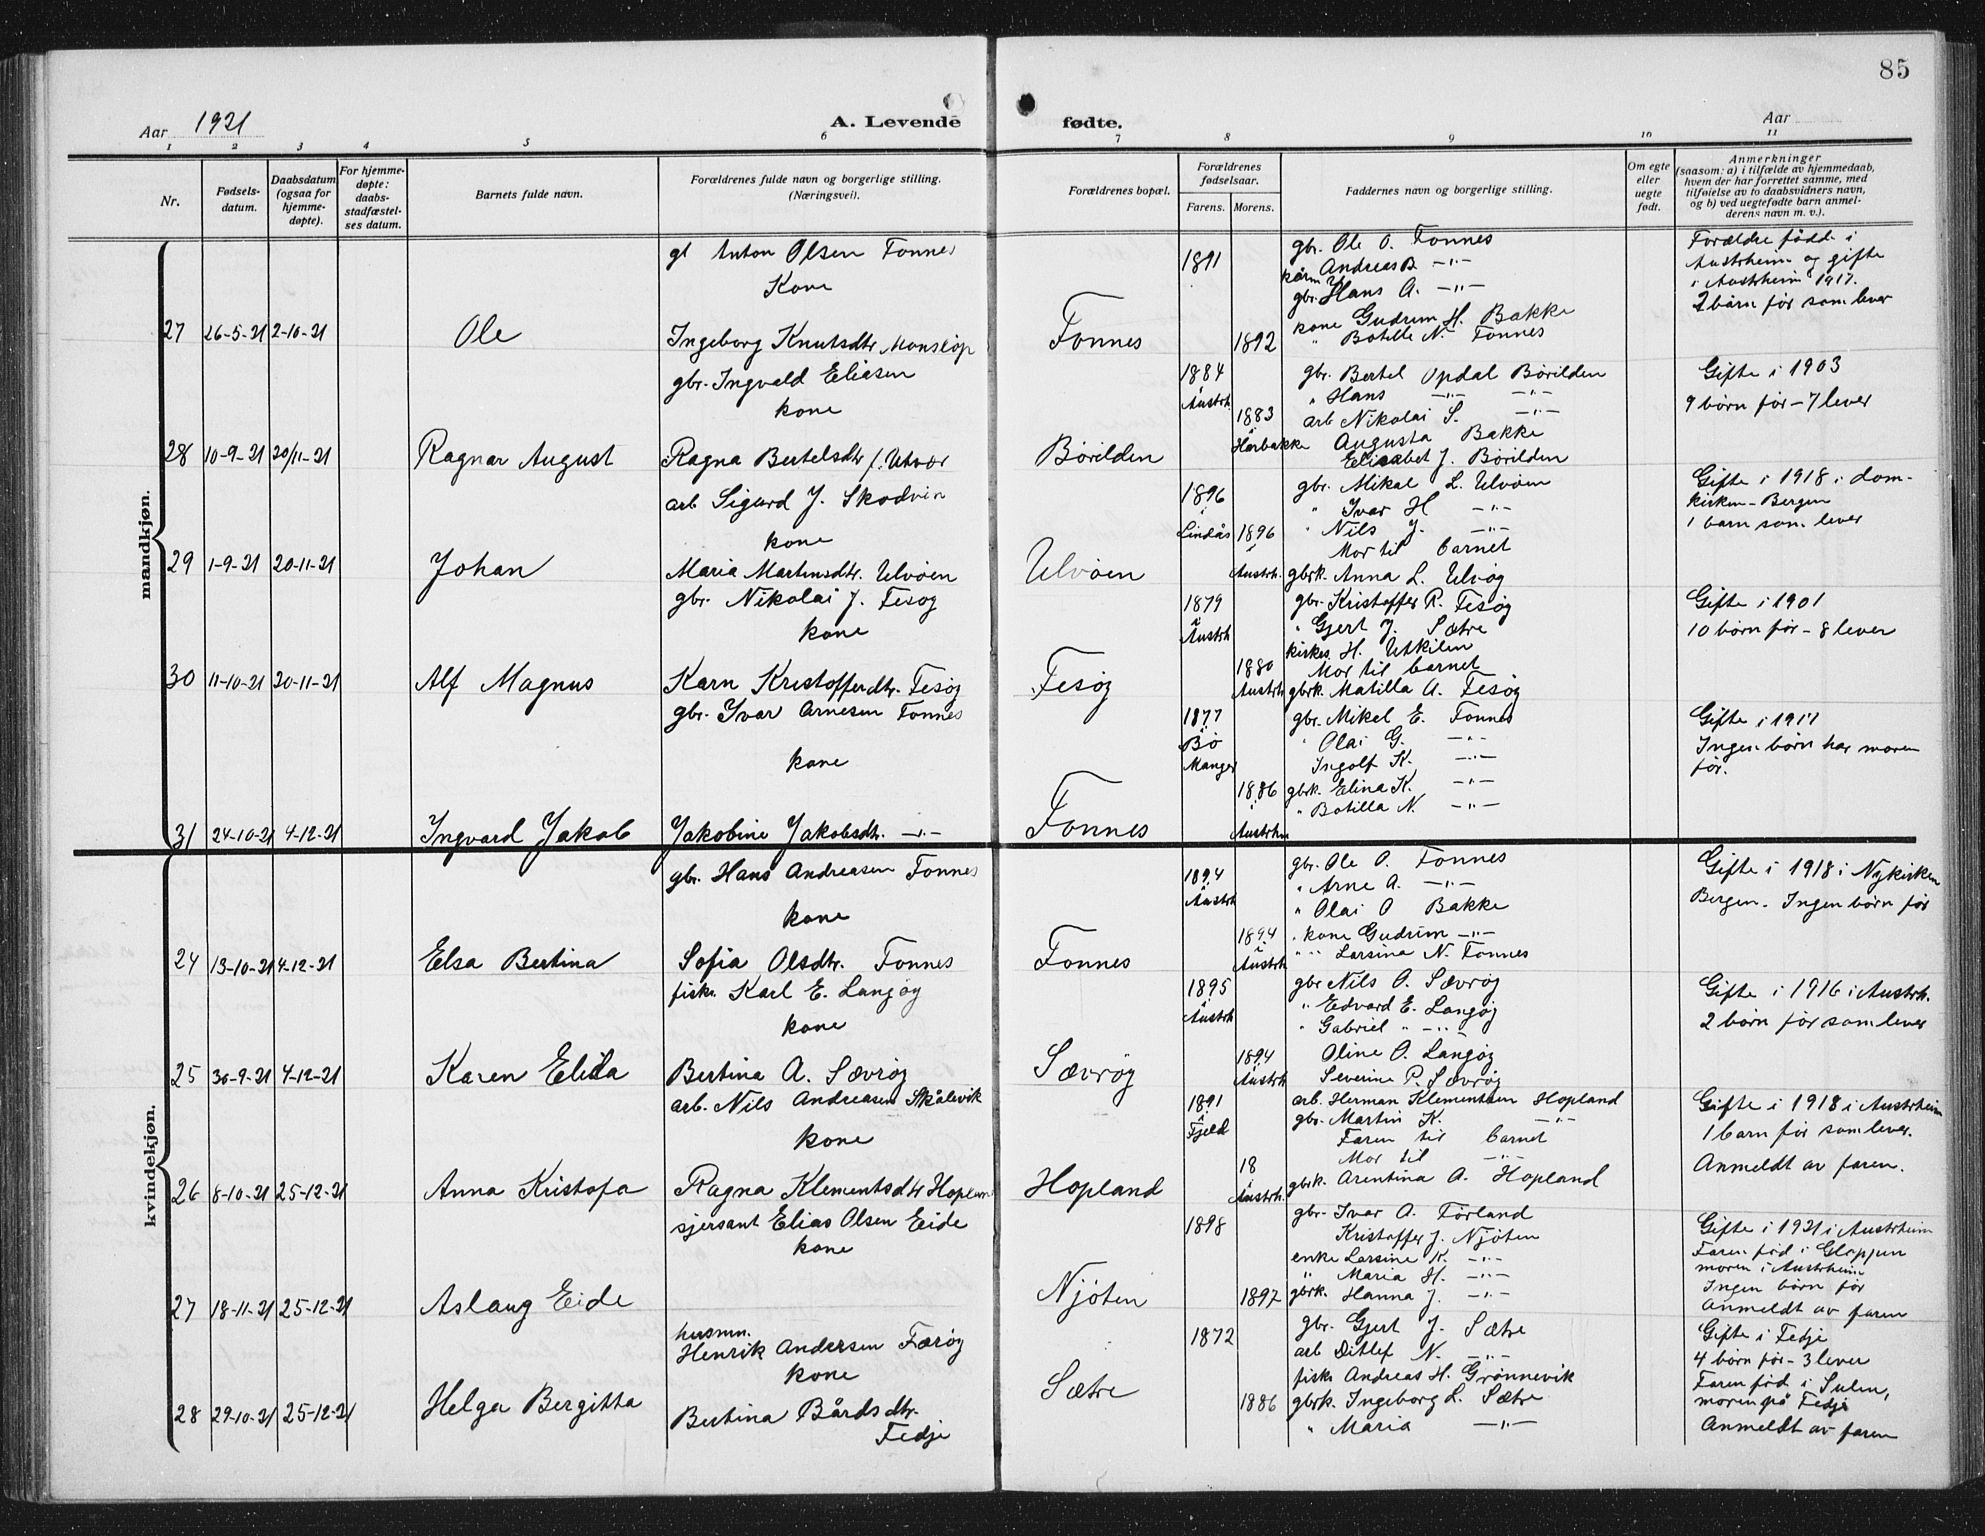 85
Aar 1921
A. Levende fødte.
Aar
1 2 3 4 5 6 7 8 9 10 11
Nr.
Fødsels-
datum.
Daabsdatum
(ogsaa for
hjemme-
døpte).
For hjemme-
døpte:
daabs-
stadfæstel-
ses datum.
Barnets fulde navn.
Forældrenes fulde navn og borgerlige stilling.
(Næringsvei).
Forældrenes bopæl.
Forældrenes
fødselsaar.
Farens. Morens.
Faddernes navn og borgerlige stilling.
Om egte
eller
uegte
født.
Anmerkninger
(saasom: a) i tilfælde av hjemmedaab,
hvem der har forrettet samme, med
tilføielse av to daabsvidners navn,
og b) ved uegtefødte barn anmel-
derens navn m. v.).
mandkjøn.
27 26-5-21 2-10-21 Ole
gl Anton Olsen Fonnes
Kone
Ingeborg Knutsdtr Monsløp
Fonnes
1891
1892
gbr. Ole O. Fonnes
Andreas B. -"-
gbr. Hans A. -"-
kone Gudrun H. Bakke
" Botille N. Fonnes
Forældre fødd i
Austrheim og gifte
i Austrheim 1917.
2 børn før som lever
28 10-9-21 20/11-21 Ragnar August
gbr. Ingvald Eliasen
kone
Ragna Bertelsdtr f. Utvær
Børilden
1884
i
Austrh.
1883
i
Herbakke
gbr. Bertel Opdal Børilden
" Hans -"- -"-
arb Nikolai S. -"-
Augusta Bakke
Elisabet J. Børilden
Gifte i 1903
9 børn før - 7 lever
29 1-9-21 20-11-21 Johan
arb Sigurd J. Skodvin
kone
Maria Martinsdtr. Ulvøen
Ulvøen
1896
i
Lindås
1896
i
Austrh.
gbr. Mikal L. Ulvøen
" Ivar H -"-
" Nils J. -"-
Mor til barnet
gbrk. Anna L. Ulvøy
Gifte i 1918 i dom-
kirken - Bergen
1 barn som lever
30 11-10-21 20-11-21 Alf Magnus
gbr. Nikolai J. Fesøy
kone
Karn Kristofferdtr. Fesøy
Fesøy
1879
i
Austrh
1880
Austrh
gbr. Kristoffer R. Fesøy
" Gjert J. Sætre
kirkes. H. Utkilen
Mor til barnet
gbrk. Matilla A. Fesøy
Gifte i 1901
10 børn før - 8 lever
31 24-10-21 4-12-21 Ingvard Jakob
gbr. Ivar Arnesen Fonnes
kone
Jakobine Jakobsdtr. -"-
Fonnes
1877
i
Bø
Manger
1886
i
Austrhm
gbr. Mikal E. Fonnes
" Olai G. -"-
Ingolf K. -"-
gbrk. Elina K. -"-
" Botilla N. -"-
Gifte i 1917
Ingen børn har moren
før.
kvindekjøn.
24 13-10-21 4-12-21 Elsa Bertina
gbr. Hans Andreasen Fonnes
kone
Sofia Olsdtr. Fonnes
Fonnes
1894
i
Austrh
1894
i
Austrh
gbr. Ole O. Fonnes
" Arne A. -"-
" Olai O Bakke
" kone Gudrun -"-
" " Larsina N. Fonnes
Gifte i 1918 i Nykirken
Bergen. Ingen børn før
25 30-9-21 4-12-21 Karen Elida
fisk. Karl E. Langøy
kone
Bertina A. Sævrøy
Sævrøy
1895
i
Austrh
1894
i
Austrh
gbr Nils O. Sævrøy
" Edvard E. Langøy
" Gabriel " -"-
Oline O. Langøy
Severine P. Sævrøy
Gifte i 1916 i Austrh.
2 børn før som lever
26 8-10-21 25-12-21 Anna Kristofa
arb. Nils Andreasen Skålevik
kone
Ragna Klementsdtr Hopland
Hopland
1891
i
Fjeld
18
i
Austrh.
arb. Herman Klementsen Hopland
gbr. Martin K. -"-
Faren til barnet
Mor til -"-
gbrk. Arentina A. Hopland
Gifte i 1918 i Austrheim
1 barn før som lever.
Anmeldt av faren.
27 18-11-21 25-12-21 Aslaug Eide
sjersant Elias Olsen Eide
kone
Njøten
1898
1897
gbr. Ivar A. Førland
Kristoffer J. Njøten
enke Larsine K. -"-
" Maria H. -"-
gbrk. Hanna J. -"-
Gifte i 1921 i Austrheim
Faren fød i Gloppen
moren i Austrheim
Ingen børn før
Anmeldt av faren
28 29-10-21 25-12-21 Helga Bergitta
husmn.
Henrik Andersen Færøy
kone
Bertina Bårdsdtr.
Fedje
Sætre
1872
1886
gbr. Gjert J. Sætre
arb Ditlef N. -"-
fiskr Andreas H. Grønnevik
gbrk. Ingeborg L. Sætre
" Maria -"-
Gifte i Fedje
4 børn før - 3 lever
Faren fød i Sulen,
moren på Fedje
Anmeldt av faren